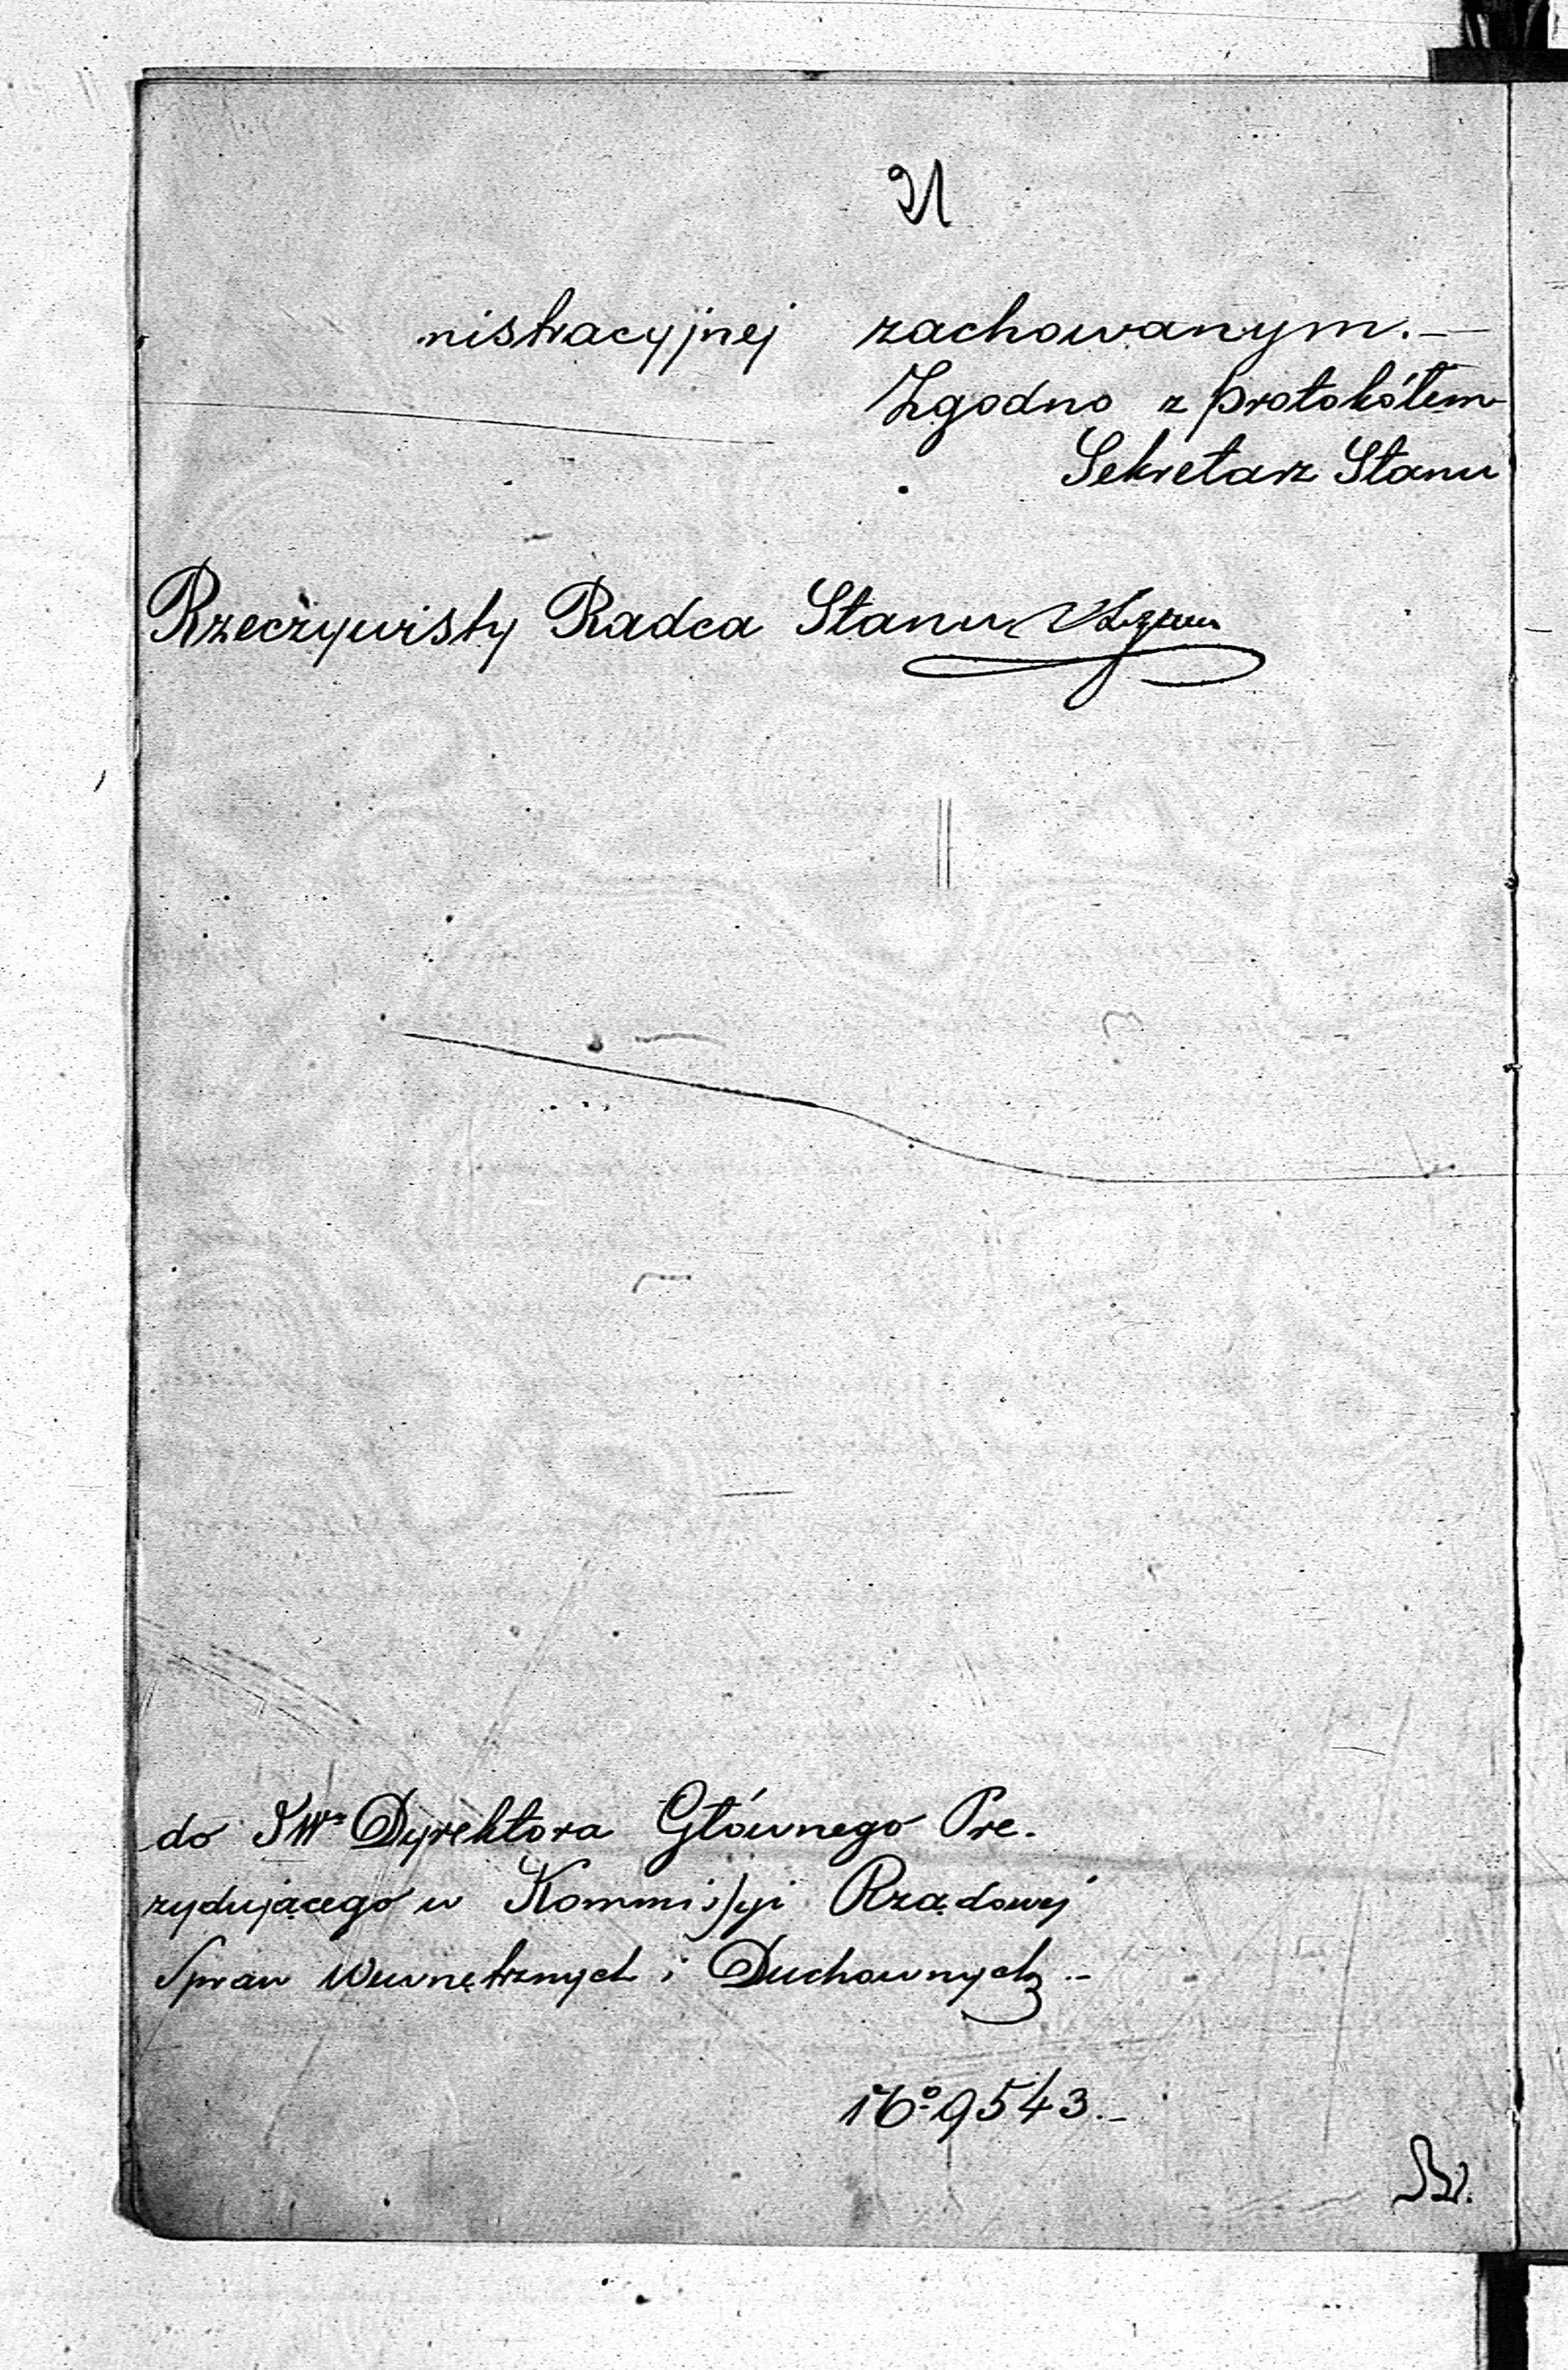 21
nistracyjnej zachowanym.—
Zgodno z protokółem
Sekretarz Stanu
Rzeczywisty Radca Stanu
do JWo Dyrektora Głównego Pre.
zydującego w Kommissyi Rządowej
Spraw Wewnętrznych i Duchownych.-
No 9543.-